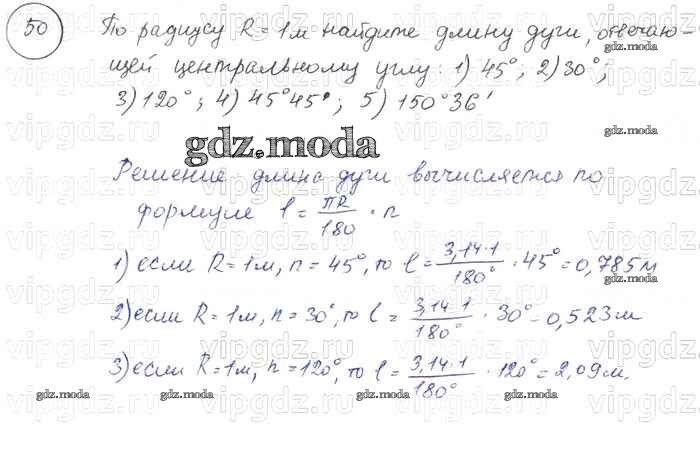 50 По радиусу R = 1м найдите длину дуги, отвечаю-
щей центральному углу: 1) 45°; 2) 30°;
3) 120°; 4) 45°45'; 5) 150°36'
gdz.moda
Решение: длина дуги вычисляется по
формуле l = πR/180 · n
1) если R = 1м, n = 45°, то l = 3,14·1/180° · 45° = 0,785м
2) если R = 1м, n = 30°, то l = 3,14·1/180° · 30° = 0,523м
3) если R = 1м, n = 120°, то l = 3,14·1/180° · 120° = 2,09м.
vipgdz.ru
gdz.moda